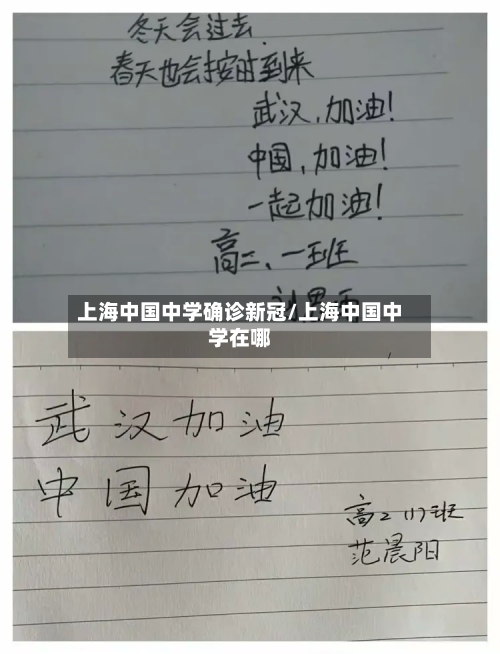 冬天会过去.
春天也会按时到来
武汉,加油!
中国,加油!
一起加油!
高二、一班
上海中国中学确诊新冠/上海中国中
学在哪
武汉加油
中国加油
高2(1)班
范晨阳